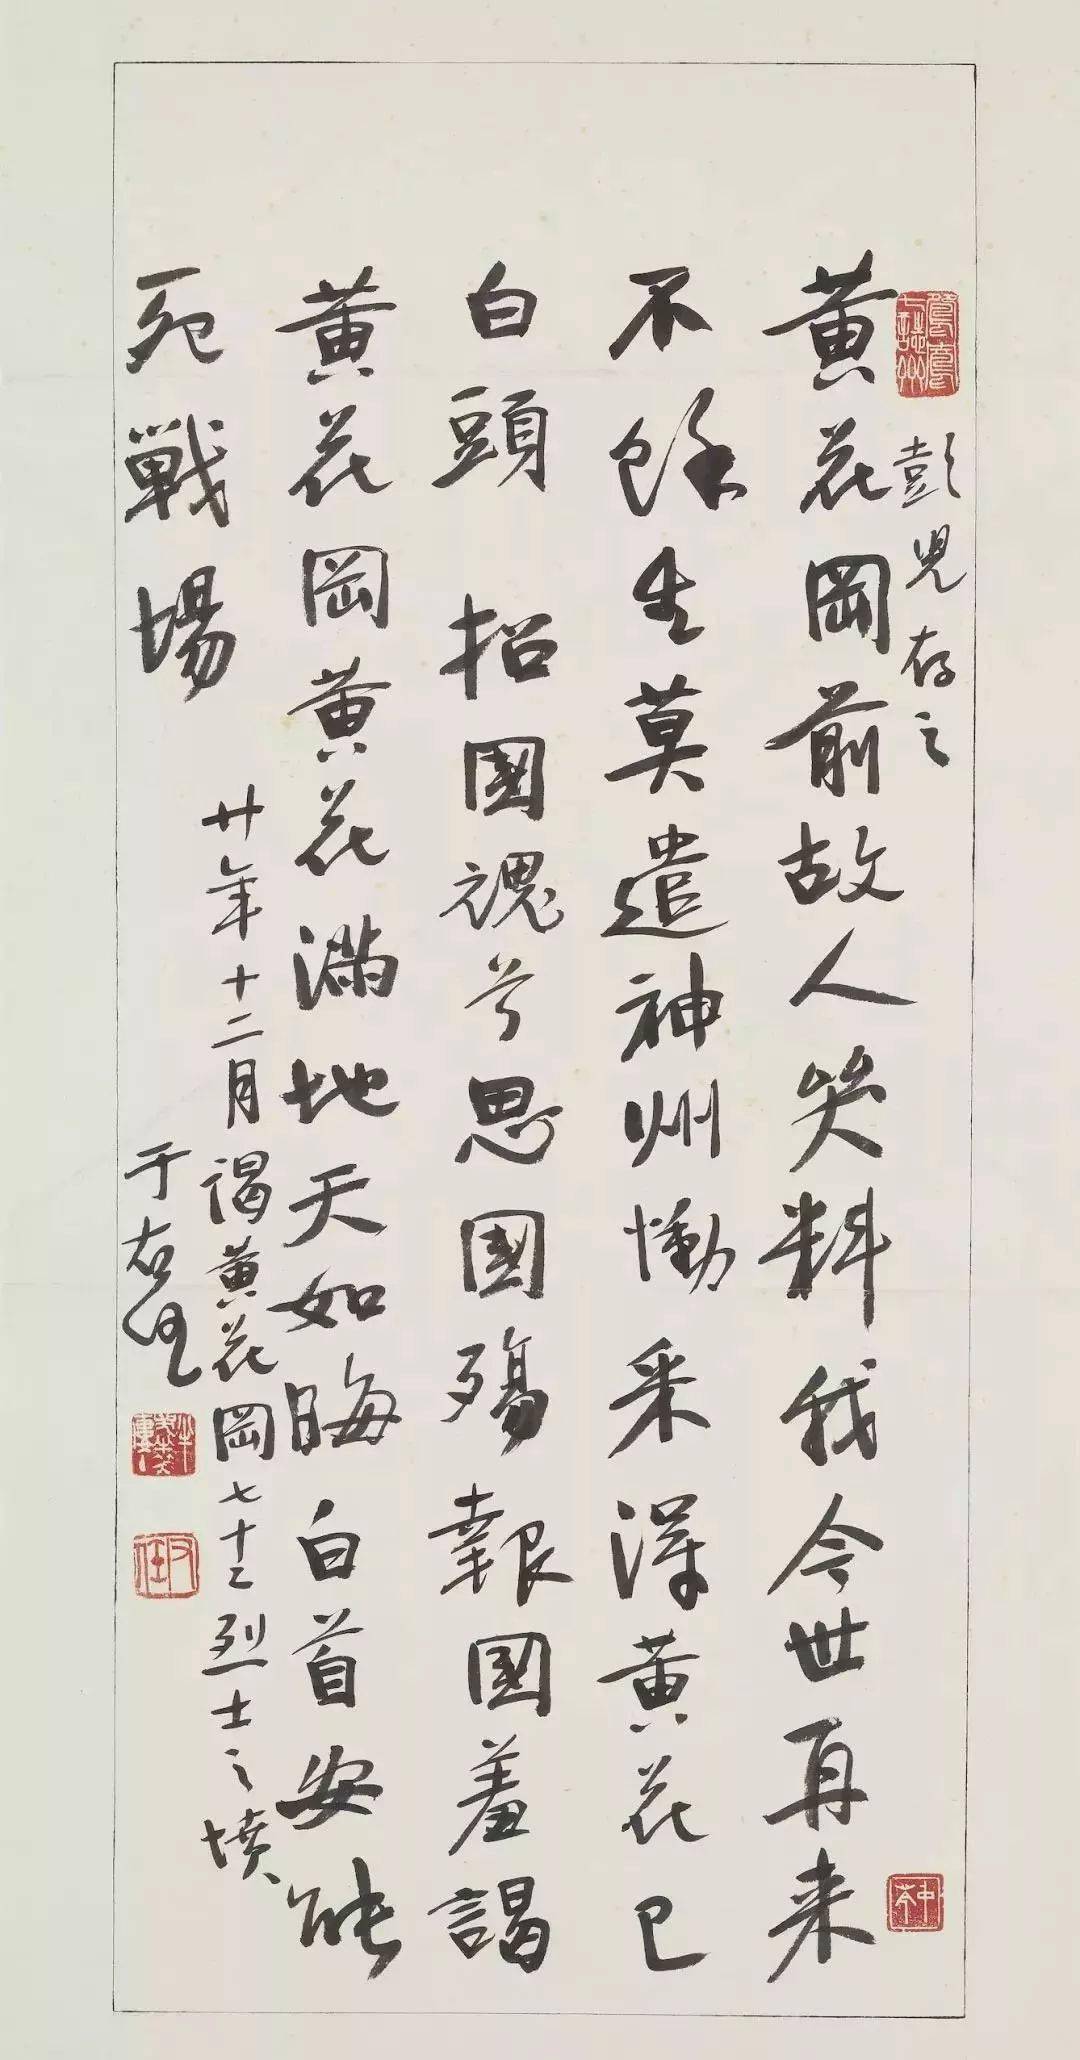 鴛鴦七誌齋
彭兒存之
黄花岡前故人哭料我今世再来
不餘生莫遣神州慟采得黄花已
白頭 招國魂兮思國殤報國羞謁
黄花岡黄花滿地天如晦白首安能
死戰場
廿年十二月謁黄花岡七十二烈士之墳
于右任
半哭半笑樓
右任